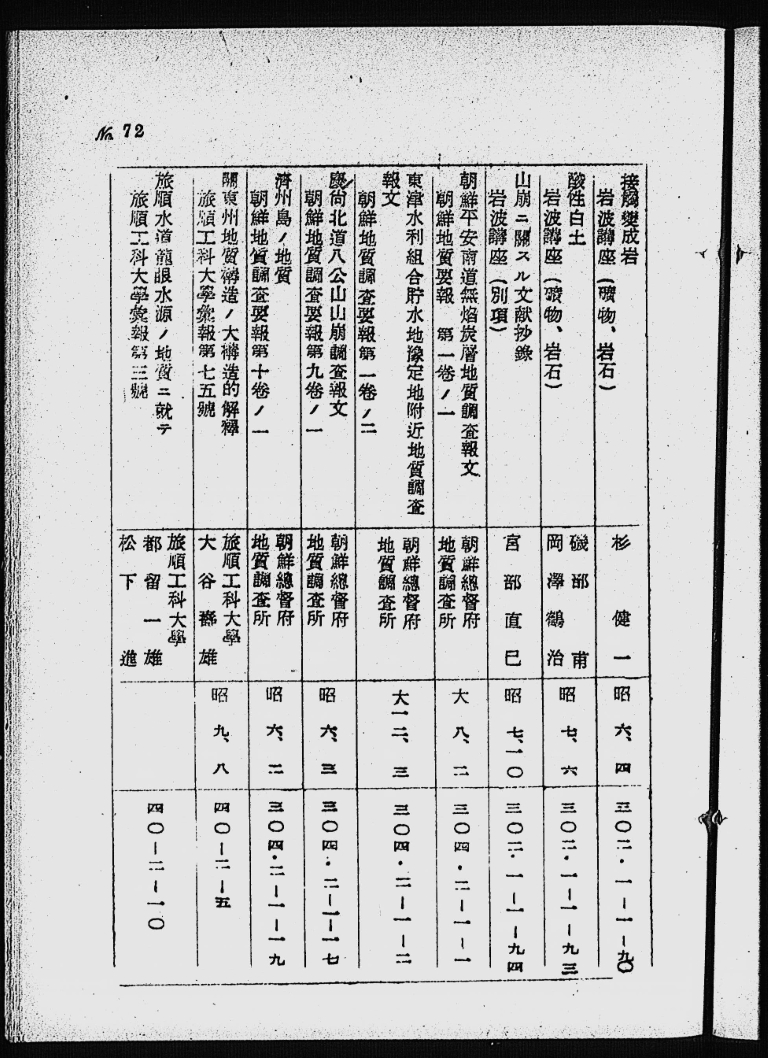 No. 72
接觸變成岩
岩波講座（礦物、岩石）
杉健一
昭六、四
三〇二・一―一―九〇
酸性白土
岩波講座（礦物、岩石）
磯部甫
岡澤鶴治
昭七、六
三〇二・一―一―九三
山崩ニ關スル文献抄錄
岩波講座（別項）
宮部直巳
昭七、一〇
三〇二・一―一―九四
朝鮮平安南道無焰炭層地質調査報文
朝鮮地質要報　第一卷ノ一
朝鮮總督府
地質調査所
大八、二
三〇四・二―一―一
東津水利組合貯水地豫定地附近地質調査
報文
朝鮮地質調査要報第一卷ノ二
朝鮮總督府
地質調査所
大一二、三
三〇四・二―一―二
慶尙北道八公山山崩調査報文
朝鮮地質調査要報第九卷ノ一
朝鮮總督府
地質調査所
昭六、三
三〇四・二―一―一七
濟州島ノ地質
朝鮮地質調査要報第十卷ノ一
朝鮮總督府
地質調査所
昭六、二
三〇四・二―一―一九
關東州地質構造ノ大構造的解釋
旅順工科大學彙報第七五號
旅順工科大學
大谷壽雄
昭九、八
四〇―二―五
旅順水道龍眼水源ノ地質ニ就テ
旅順工科大學彙報第三號
旅順工科大學
都留一雄
松下進
四〇―二―一〇